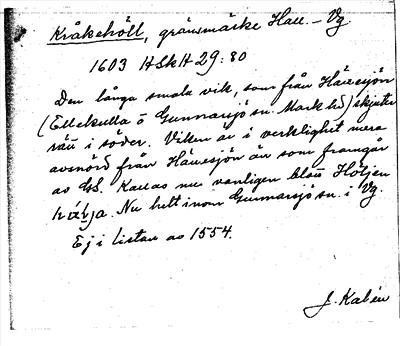 Kråkehöll, gränsmärke Hall.-Vg
1603 HSkH 29:80
Den långa smala vik, som från Hällesjön
(Ellekulla ö Gunnarsjö sn. Mark hd) skjuter
rätt i söder. Viken är i verklighet mera
avsnörd från Hällesjön än som framgår
av GS. Kallas nu vanligen blott Höljen
. Nu helt inom Gunnarsjö sn. i Vg.
Ej i listan av 1554.
J. Kalén